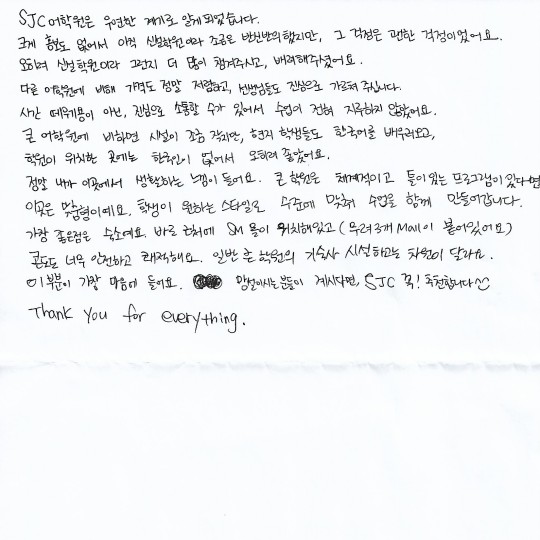 SJC어학원은 우연한 계기로 알게되었습니다.
크게 정보도 없어서 아직 신설학원이라 조금은 반신반의했지만, 그 걱정은 괜한 걱정이었어요.
오히려 신설학원이라 그런지 더 많이 챙겨주시고, 배려해주셨어요.
다른 어학원에 비해 가격도 정말 저렴하고, 선생님들도 진심으로 가르쳐 주십니다.
시간 떼우기용이 아닌, 진심으로 소통할 수가 있어서 수업이 전혀 지루하지 않았어요.
큰 어학원에 비하면 시설이 조금 작지만, 현지 학생들도 한국어를 배우러오고,
학원이 위치한 곳에는 한국인이 없어서 오히려 좋았어요.
정말 내가 이곳에서 생활하는 느낌이 들어요. 큰 학원은 체계적이고 틀이있는 프로그램이 있다면
이곳은 맞춤형이에요. 학생이 원하는 스타일로 수준에 맞춰 수업을 함께 만들어갑니다.
가장 좋은점은 숙소에요. 바로 근처에 SM 몰이 위치해있고 (무려 3개 Mall이 붙어있어요)
콘도도 너무 안전하고 쾌적해요. 일반 큰 학원의 기숙사 시설하고는 차원이 달라요.
이 부분이 가장 마음에 들어요. 망설이시는분들이 계시다면, SJC 꼭! 추천합니다
Thank you for everything.